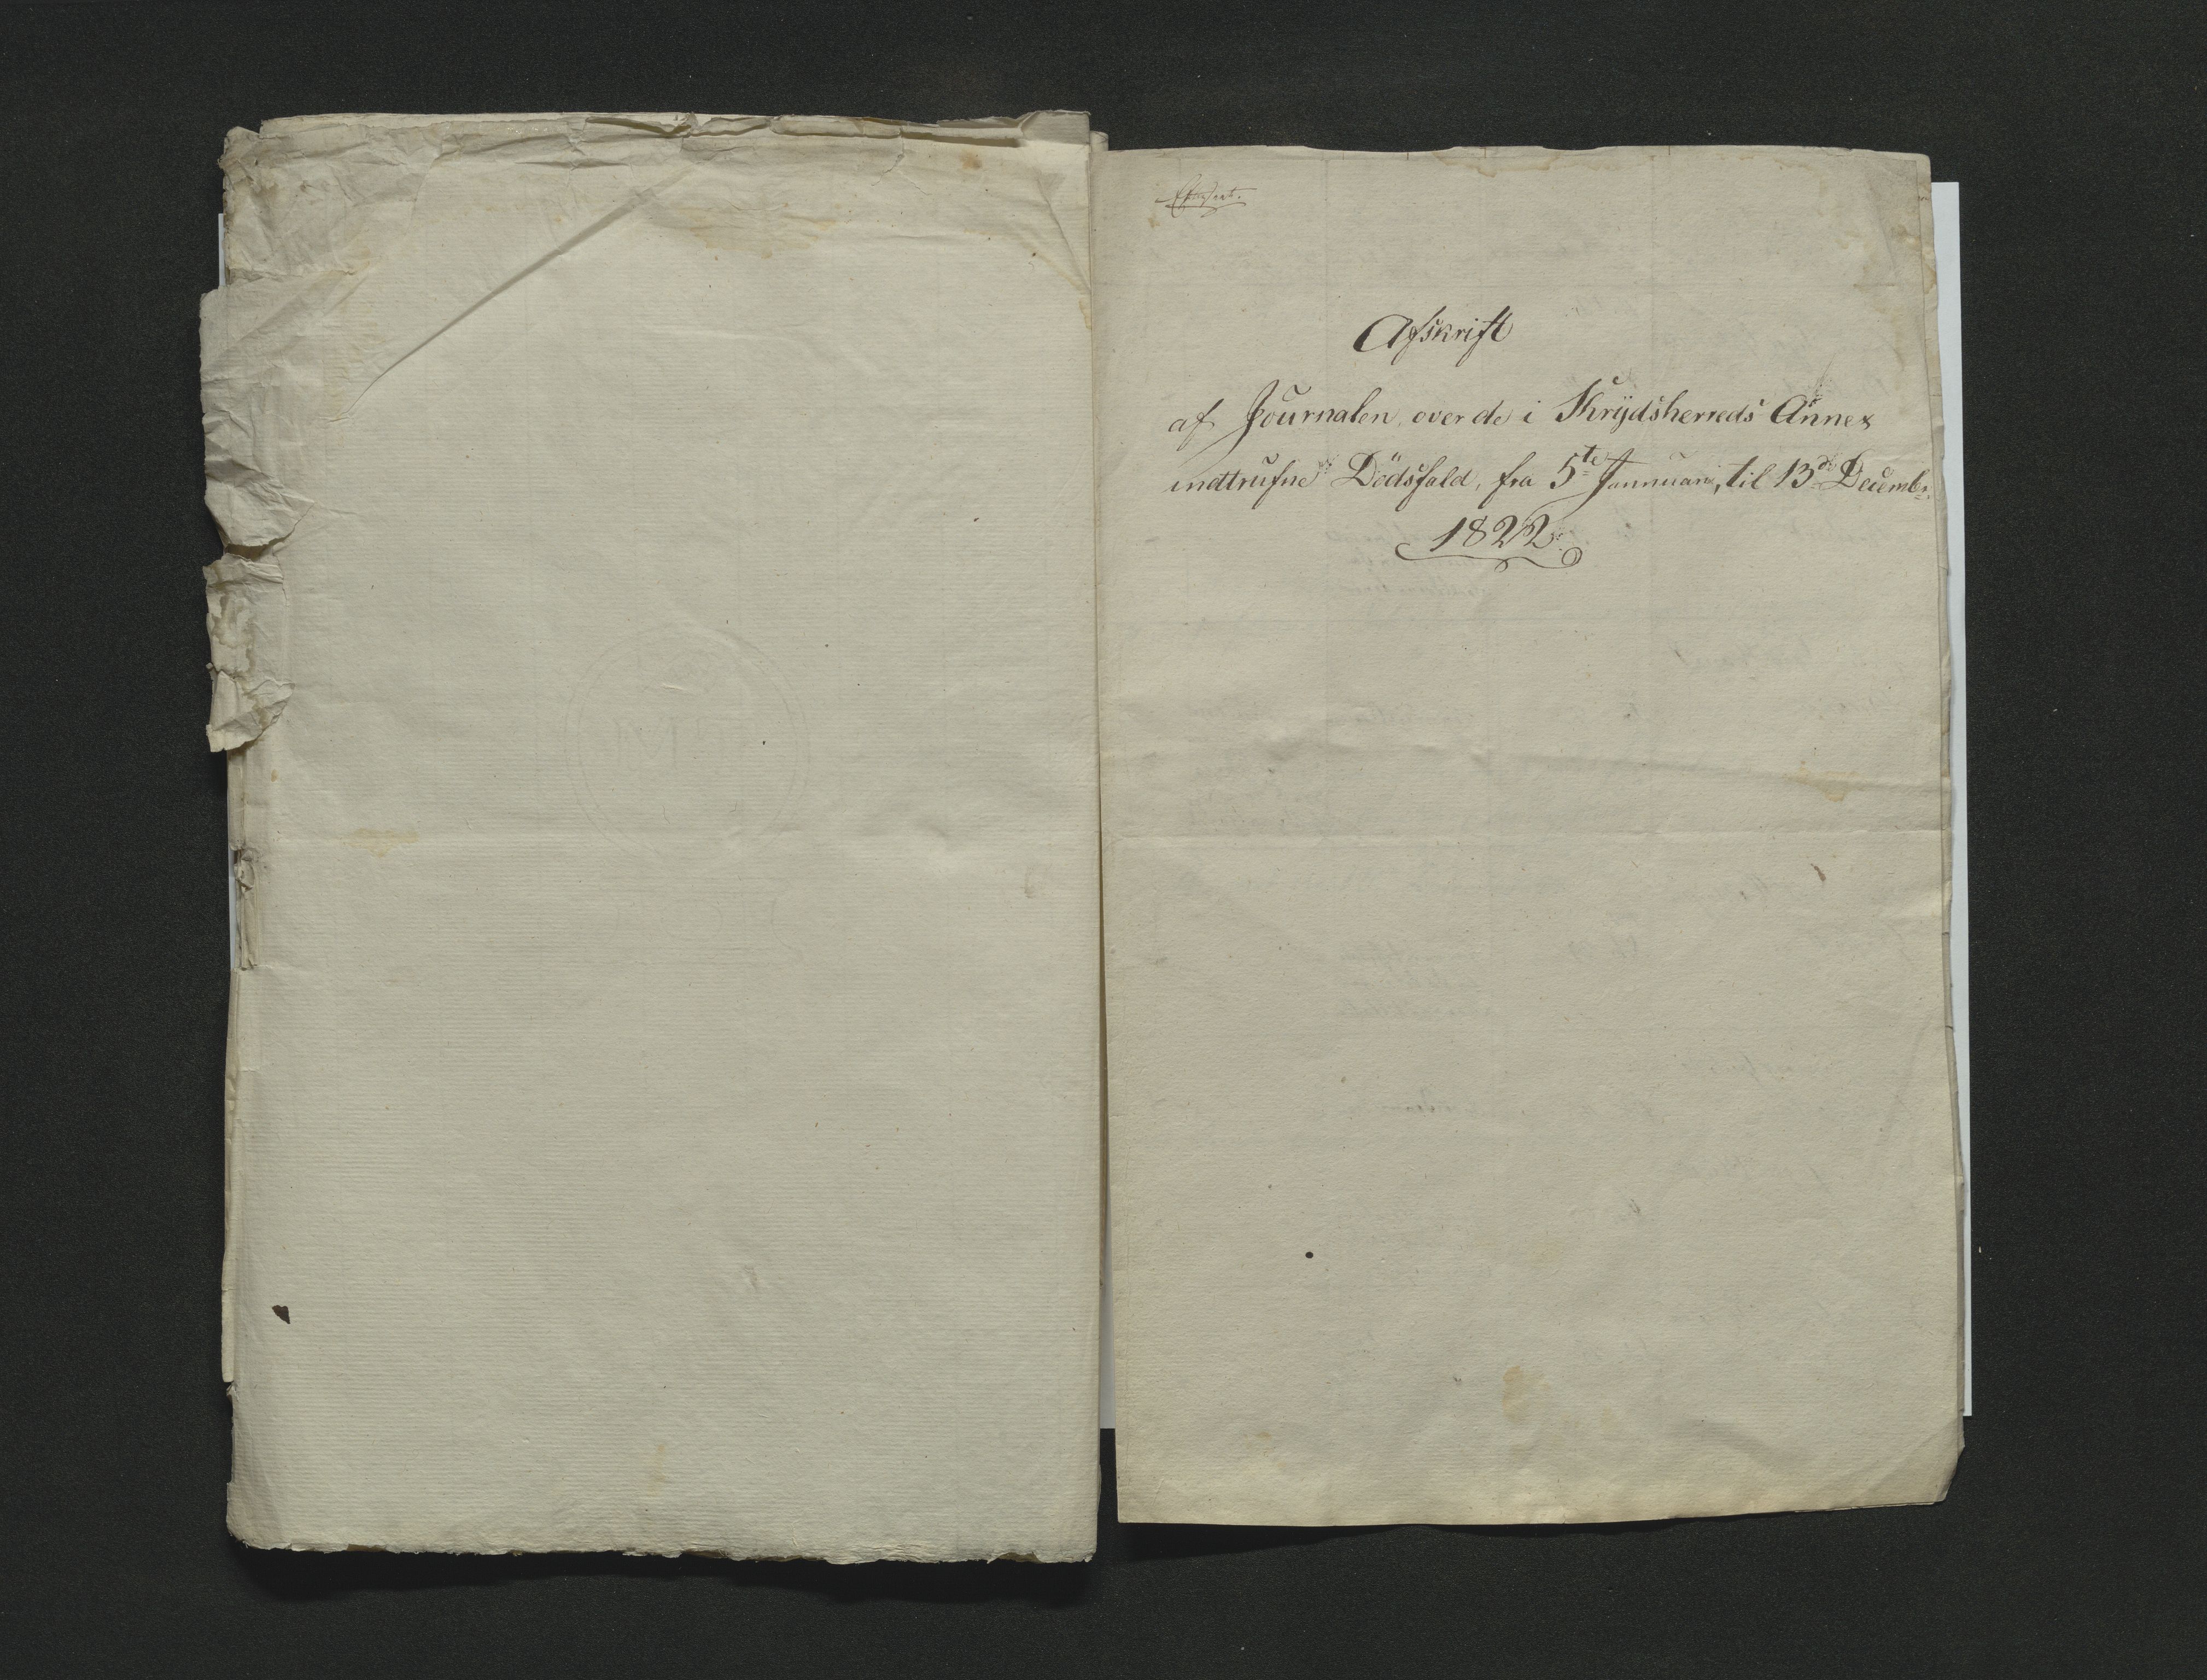 Afskrift
af Journalen over de i Krydsherreds Annex
indtrufne Dödsfald, fra 5te Januari, til 13de Decembr.
1822.